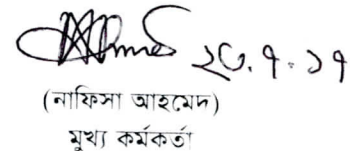 ২৩.৭.১৭
(নাফিসা আহমেদ)
মুখ্য কর্মকর্তা